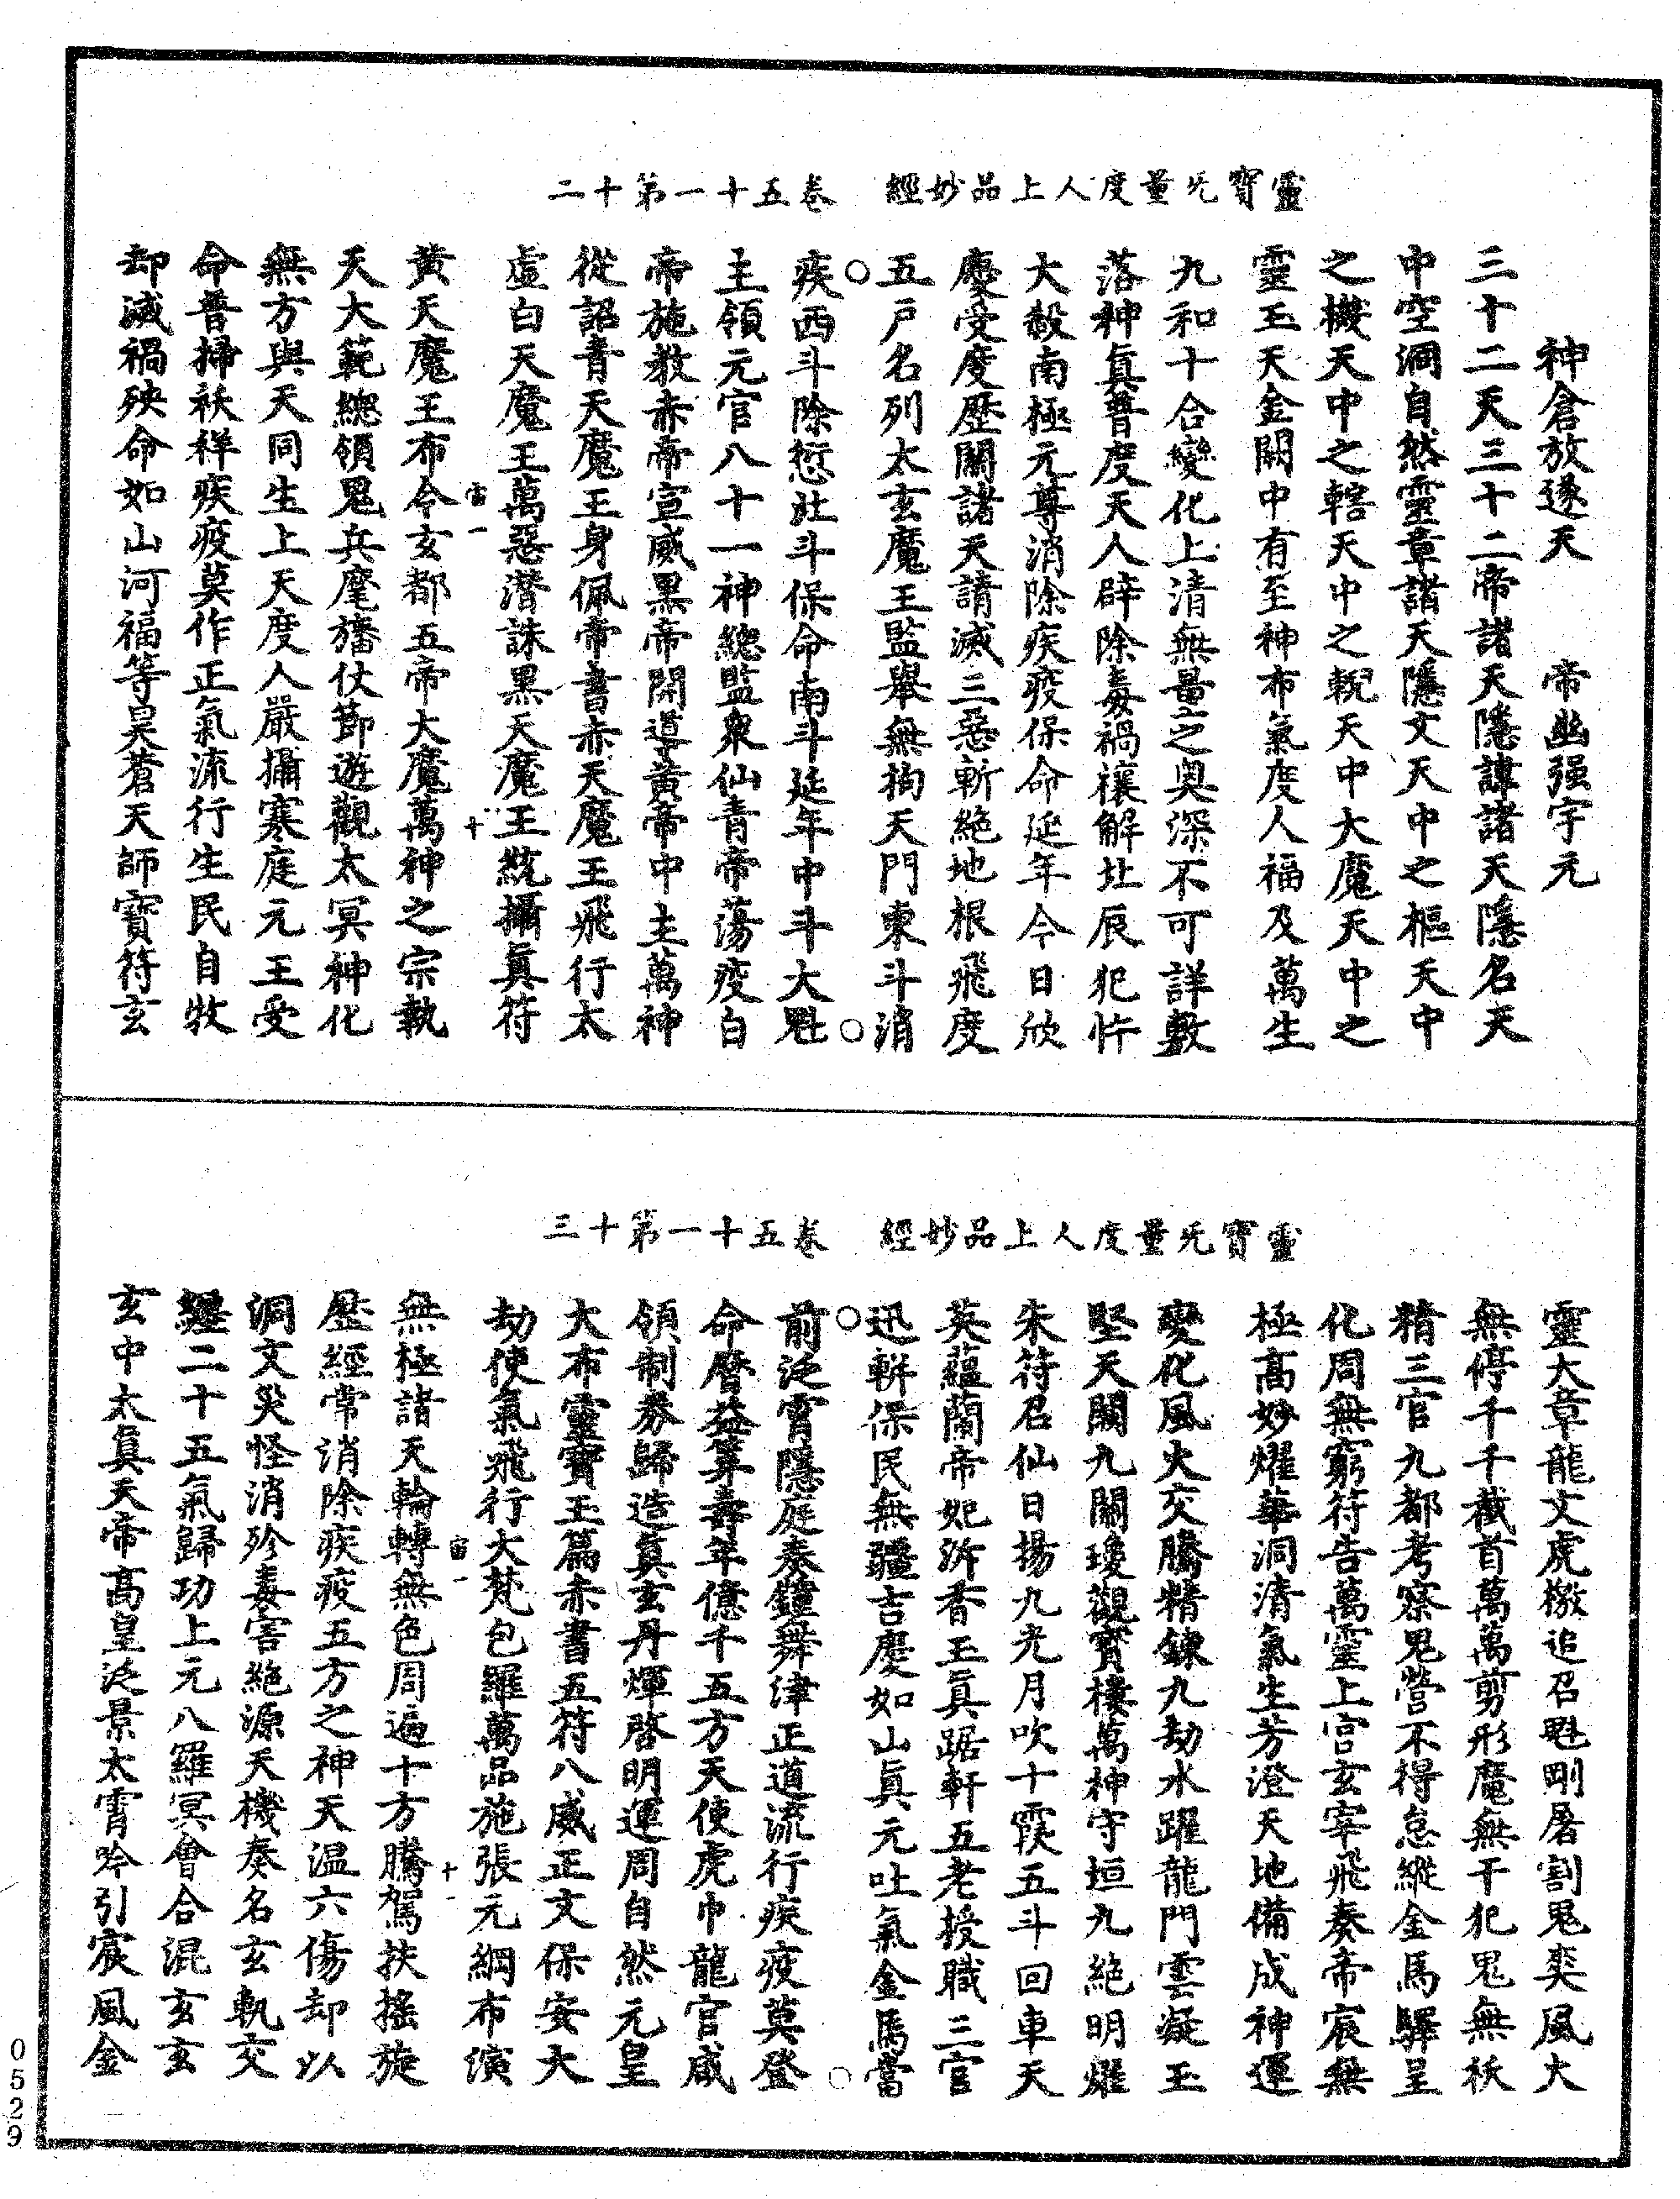 靈寶旡量度人上品妙經　卷五十一第十二
神倉放遂天　帝幽强宇元
三十二天三十二帝諸天隱諱諸天隱名天
中空洞自然靈章諸天隱文天中之樞天中
之機天中之轄天中之輗天中大魔天中之
靈玉天金闕中有至神布氣度人福及萬生
九和十合變化上清無量之奥深不可詳敷
落神眞普度天人辟除毒禍禳解北辰犯忤
大㲉南極元尊消除疾疫保命延年今日欣
慶受度歷關諸天請滅三惡斬絶地根飛度
五戶名列太玄魔王監舉無拘天門東斗消
疾西斗除愆北斗保命南斗延年中斗大魁
主領元官八十一神總監衆仙青帝蕩疫白
帝施教赤帝宣威黑帝開道黃帝中主萬神
從詔青天魔王身佩帝書赤天魔王飛行太
虛白天魔王萬惡潛誅黑天魔王統攝眞符
黃天魔王布令玄都五帝大魔萬神之宗執
宙一　十
天大範總領鬼兵麾旛仗節遊觀太冥神化
無方與天同生上天度人嚴攝寒庭元王受
命普掃袄祥疾疫莫作正氣流行生民自牧
却滅禍殃命如山河福等昊蒼天師寶符玄
靈寶旡量度人上品妙經　卷五十一第十三
靈大章龍文虎檄追召魁剛屠割鬼奕風火
無停千千截首萬萬剪形魔無干犯鬼無袄
精三官九都考察鬼營不得怠縱金馬驛呈
化周無窮符告萬靈上宫玄宰飛奏帝宸無
極高妙燿華洞清氣生芳澄天地備成神運
變化風火交騰精鍊九劫水躍龍門雲凝玉
堅天關九關瓊觀寳樓萬神守垣九絶明燿
朱符召仙日揚九光月吹十霞五斗回車天
英蘊蘭帝妃泝香玉眞踞軒五老授職三官
迅軿保民無疆吉慶如山眞元吐氣金馬當
前泛霄隱庭奏鐘舞津正道流行疾疫莫登
命曆益筭壽年億千五方天使虎巾龍官咸
領制券歸造眞玄丹煇啓明運周自然元皇
大布靈寶玉篇赤書五符八威正文保安大
劫使氣飛行大梵包羅萬品施張元綱布演
無極諸天輪轉無色周遍十方騰駕扶搖旋
宙一　十一
歷經常消除疾疫五方之神天溫六傷却以
洞文災怪消殄毒害絶源天機奏名玄執交
纏二十五氣歸功上元八羅冥會合混玄玄
玄中太眞天帝高皇泛景太霄吟引宸風金
0529